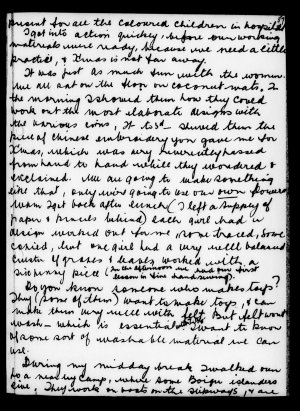 present for all the coloured children in hospital
I got into action quickly, before our working
materials were ready, because we need a little
practice, & Xmas is not far away.
It was just as much fun with the women.
We all sat on the floor on coconut mats. In
the morning I showed them how they could
work out the most elaborate designs with
the various coins, 1d to 5d. Showed them the
piece of chinese embroidery you gave me for
Xmas, which was very reverently passed
from hand to hand while they wondered &
exclaimed. We are going to make something
like that, only we're going to use our own flowers
When I got back after lunch (I left a supply of
paper & pencils behind) each girl had a
design worked out for me, some traced, some
copied, but one girl had a very well balanced
cluster of grasses & leaves worked with a
sixpenny piece (In the afternoon we had our first
lesson in line hand sewing).
Do you know someone who makes toys?
They (some of them) want to make toys, & can
make them very well with felt. But felt won't
wash – which is essential. I want to know
of some sort of washable material we can
use.
During my midday break I walked over
to a nearby camp, where some Boigu islanders
live. They work on boats on the slipways, & are